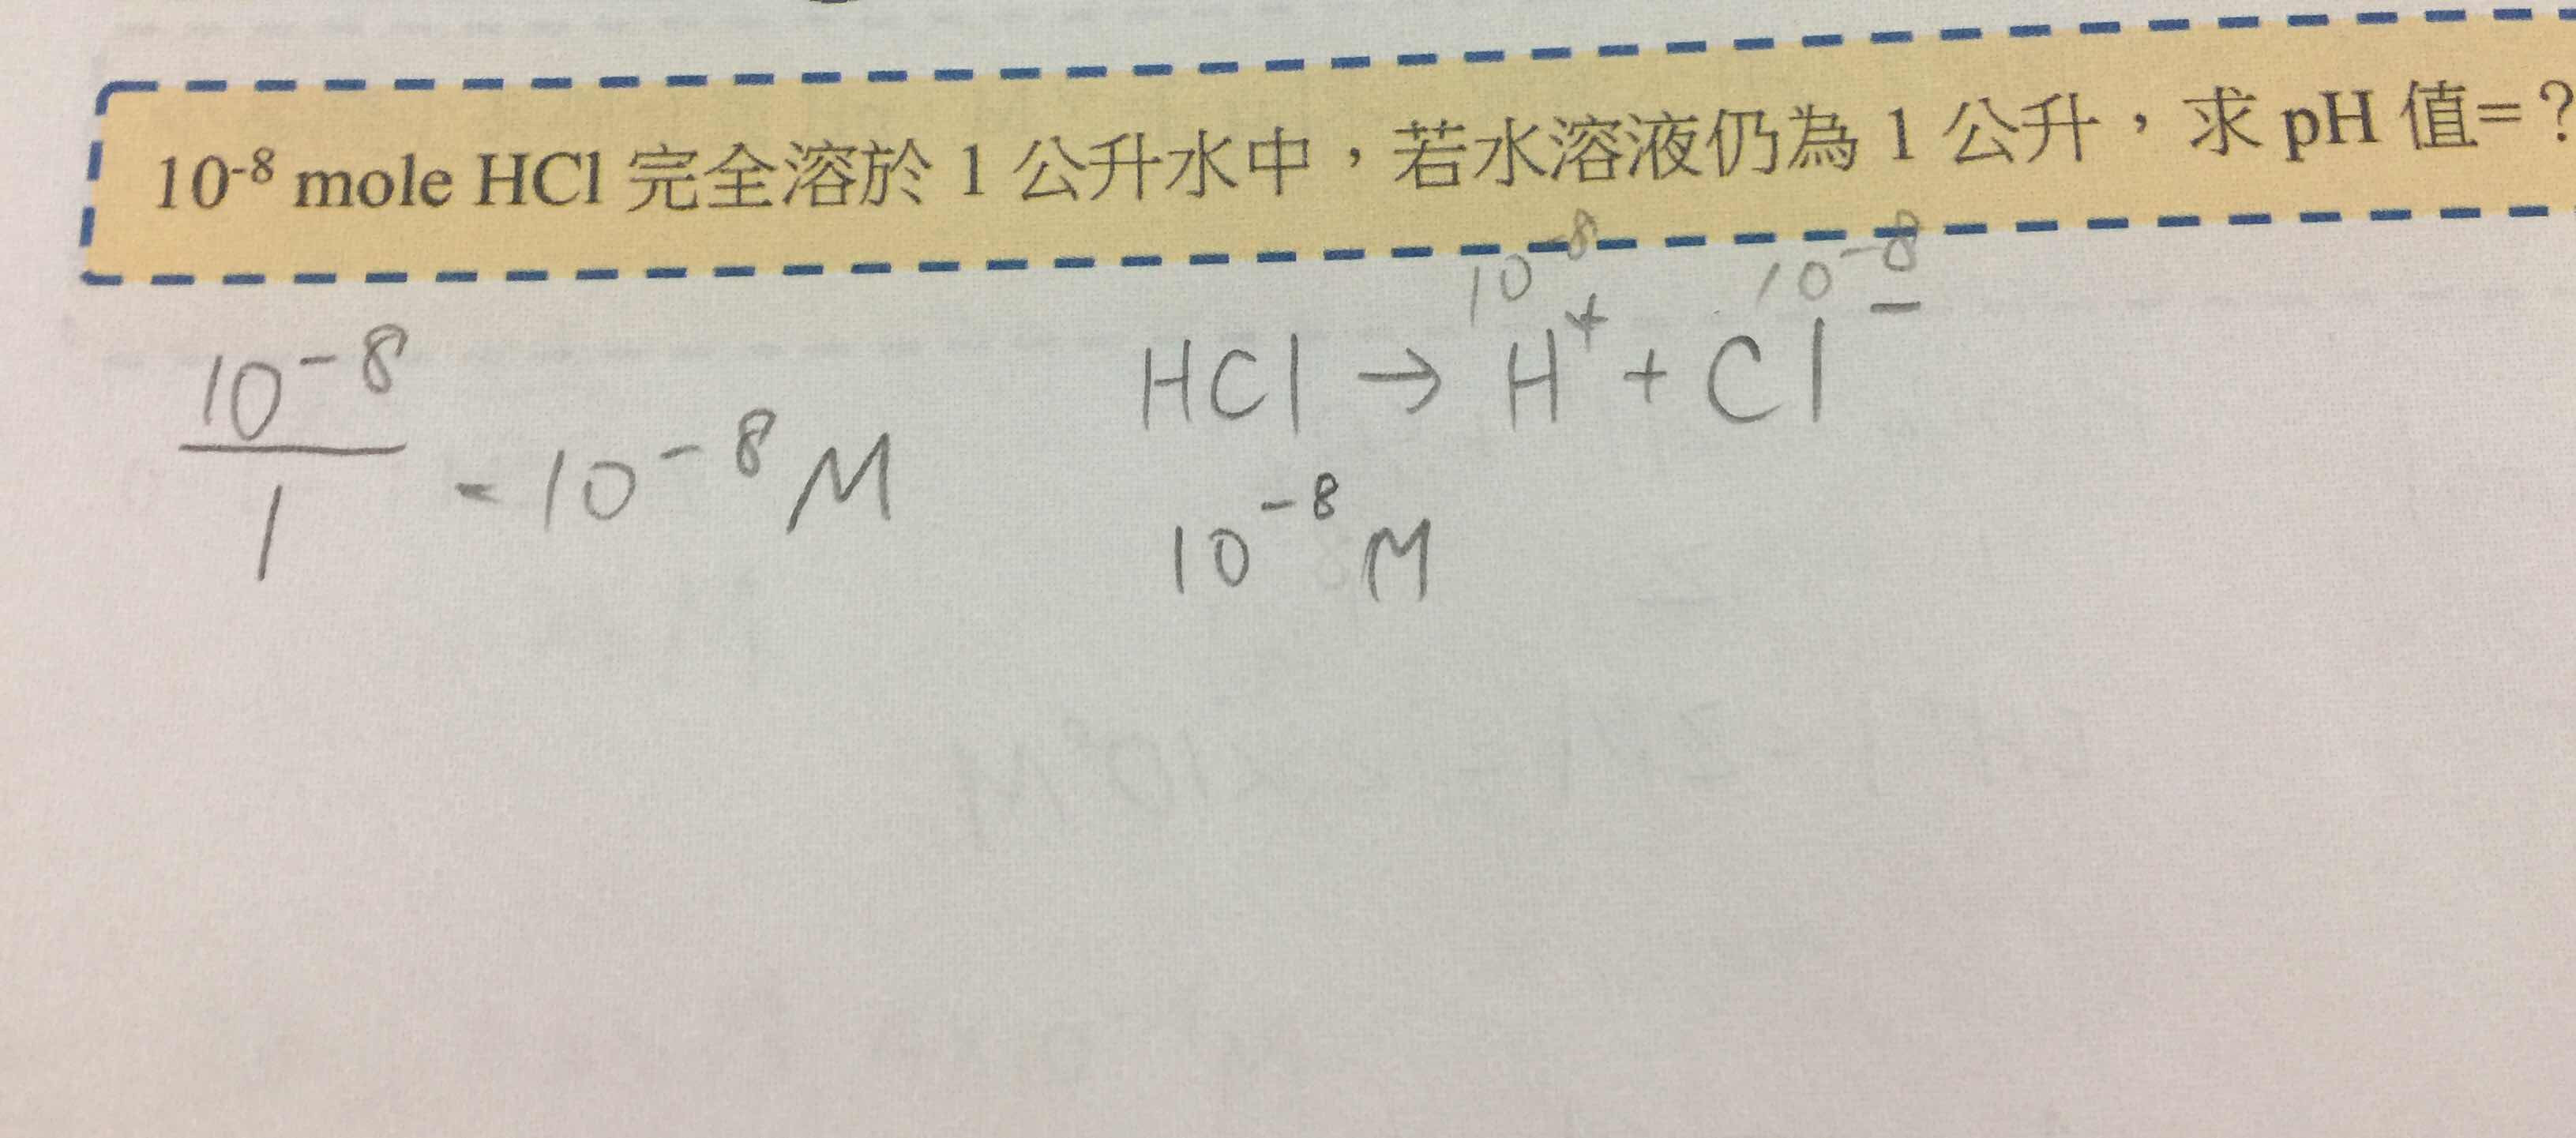 10⁻⁸ mole HCl 完全溶於 1 公升水中，若水溶液仍為 1 公升，求 pH 值=？
10⁻⁸ 10⁻⁸
HCl → H⁺ + Cl⁻
10⁻⁸ M
10⁻⁸
1
= 10⁻⁸ M